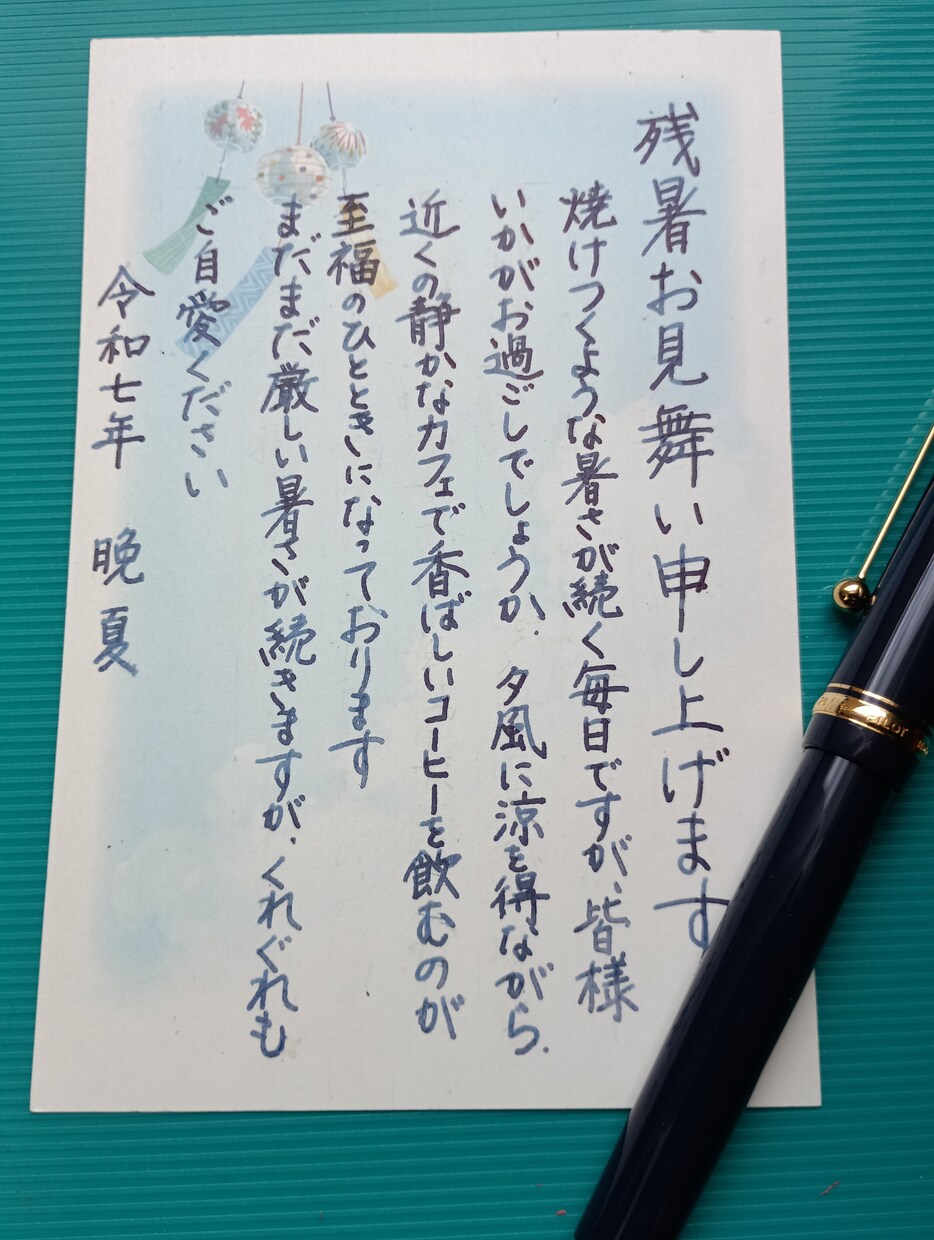 残暑お見舞い申し上げます
焼けつくような暑さが続く毎日ですが、皆様
いかがお過ごしでしょうか、夕風に涼を得ながら、
近くの静かなカフェで香ばしいコーヒーを飲むのが
至福のひとときになっております
まだまだ厳しい暑さが続きますが、くれぐれも
ご自愛ください
令和七年 晩夏